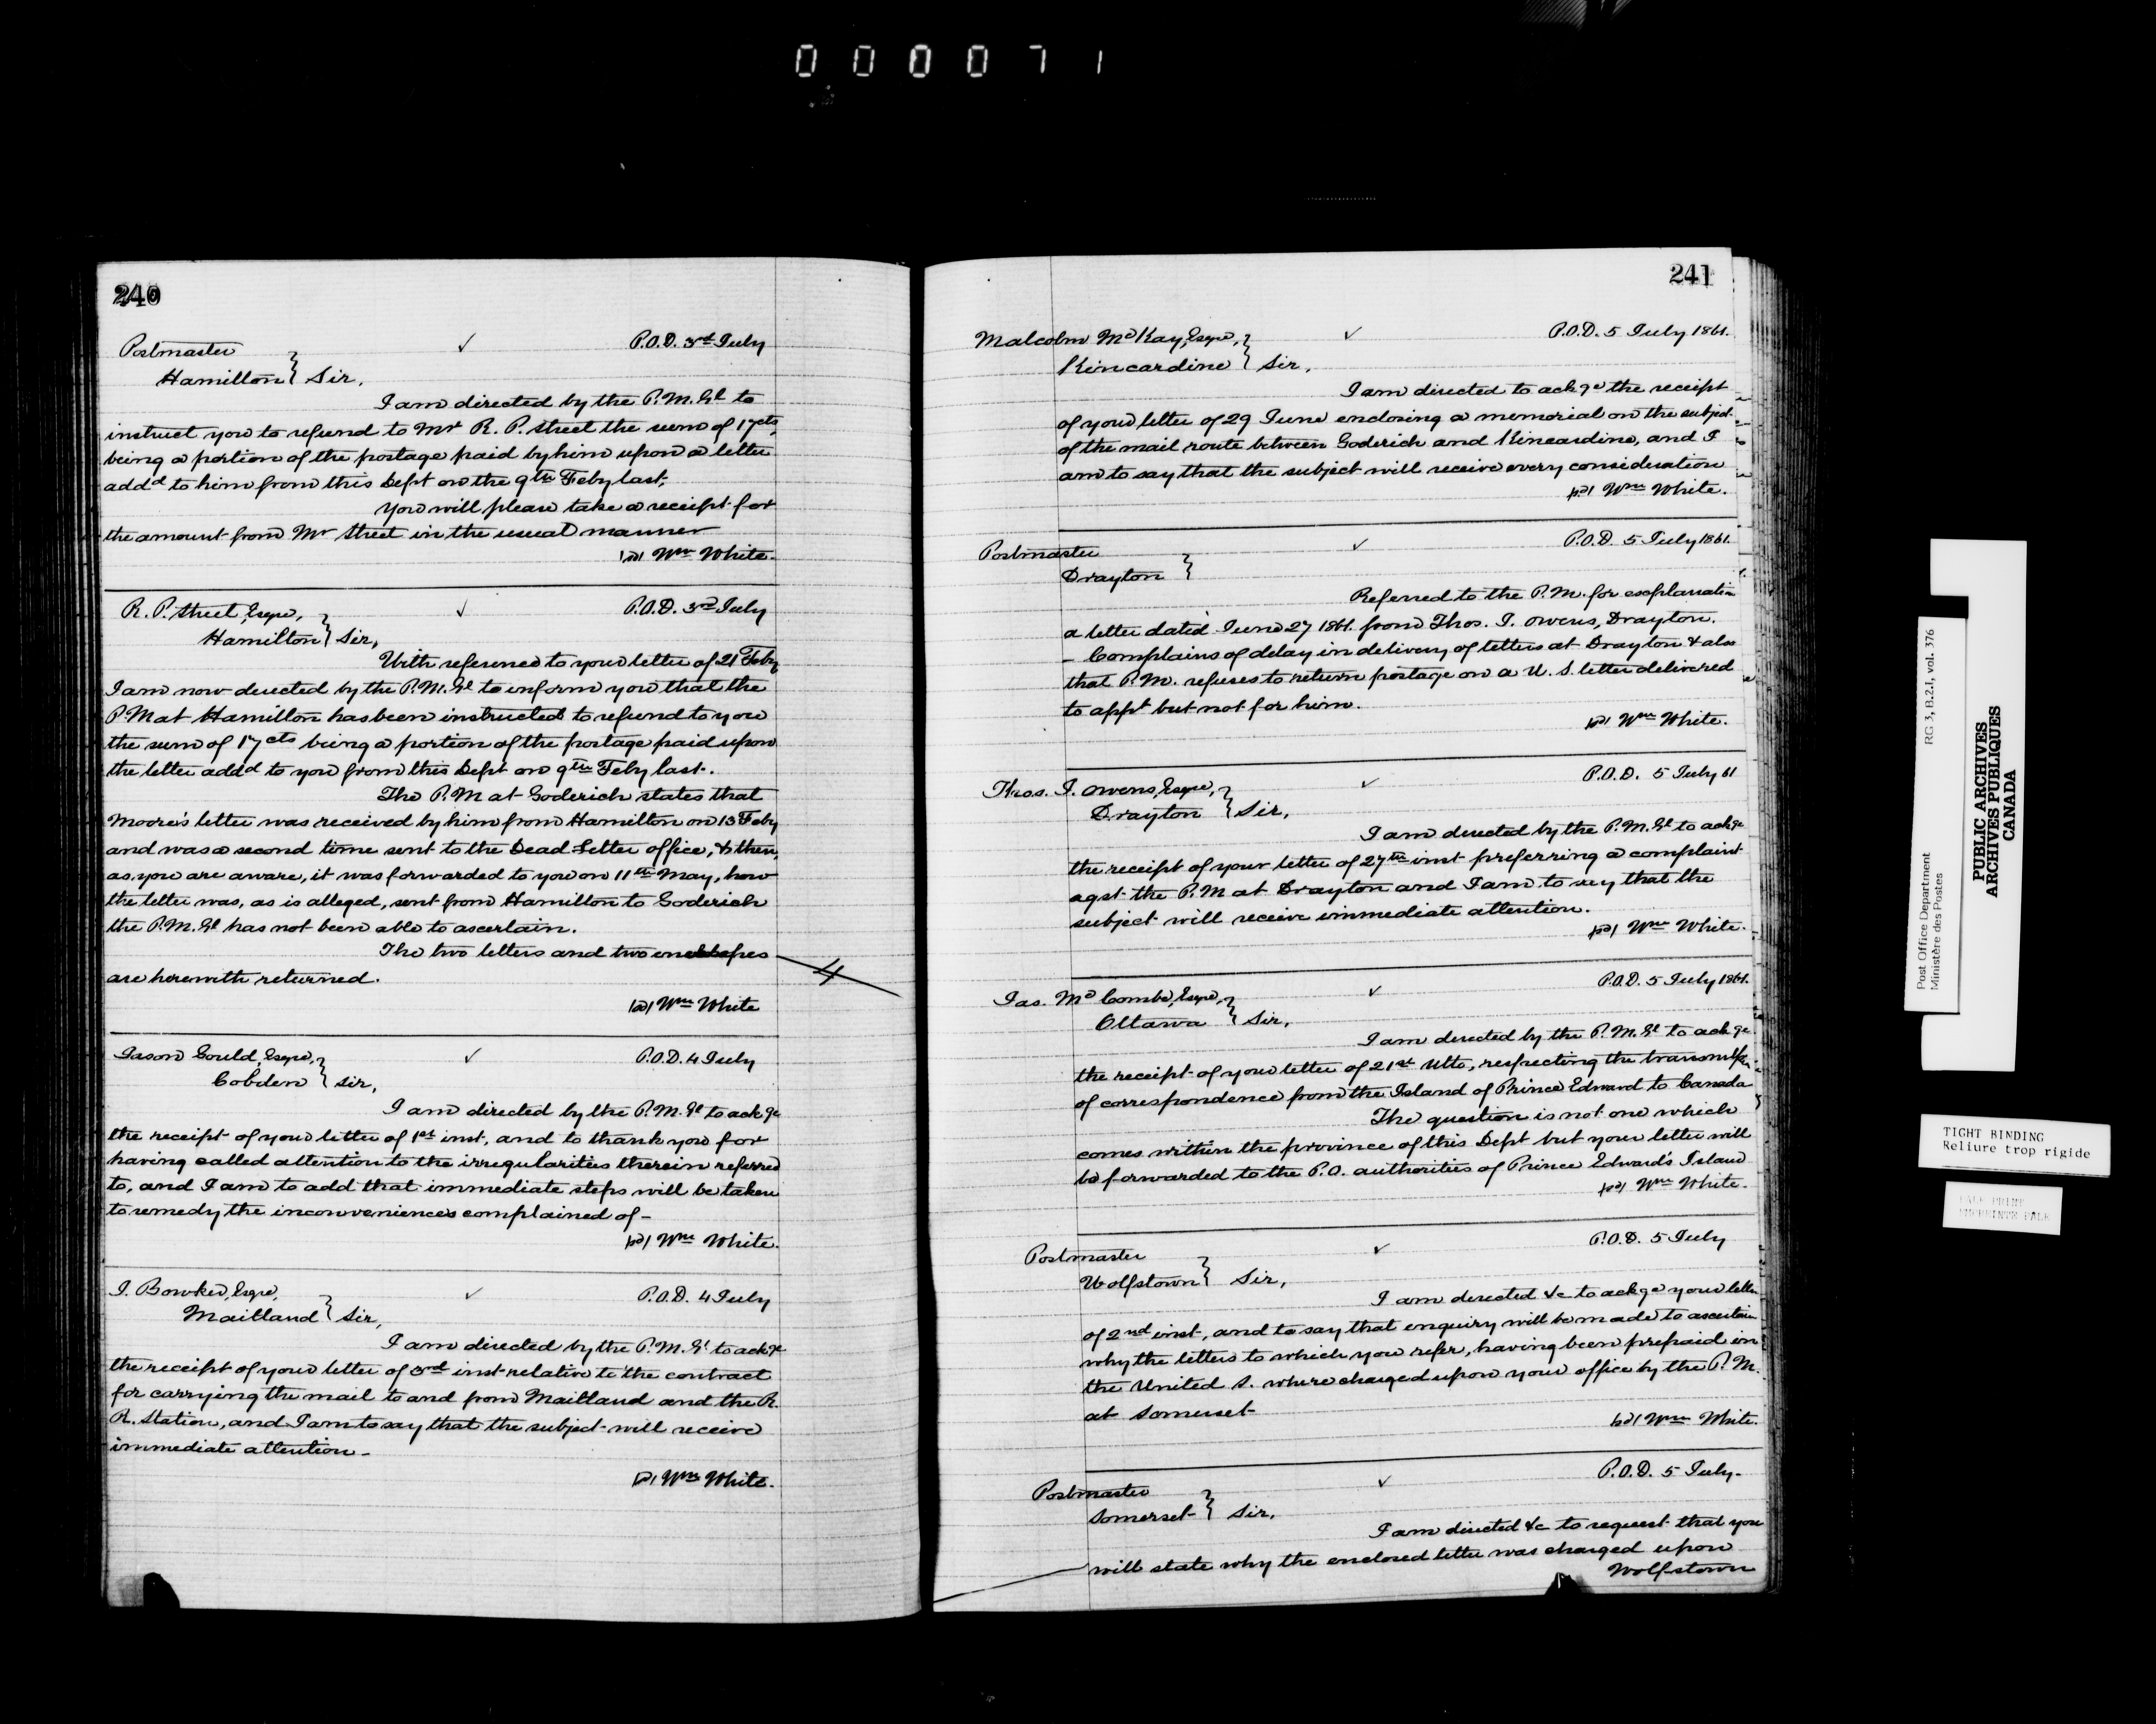 000071
240
Postmaster ✓ P.O.D. 3rd July
Hamilton } Sir,
I am directed by the P.M.Gl to
instruct you to refund to Mr R. P. Street the sum of 17cts,
being a portion of the postage paid by him upon a letter
addd to him from this Dept on the 9th Feby last.
You will please take a receipt for
the amount from Mr Street in the usual manner
Wm White.
R. P. Street, Esqre, ✓ P.O.D. 3rd July
Hamilton } Sir,
With reference to your letter of 21 Feby
I am now directed by the P.M.Gl to inform you that the
P.M at Hamilton has been instructed to refund to you
the sum of 17 cts being a portion of the postage paid upon
the letter addd to you from this Dept on 9th Feby last.
The P.M at Goderich states that
Moore's letter was received by him from Hamilton on 13 Feby
and was a second time sent to the Dead Letter office, & then,
as you are aware, it was forwarded to you on 11th May, how
the letter was, as is alleged, sent from Hamilton to Goderich
the P.M.Gl has not been able to ascertain.
The two letters and two envelopes
are herewith returned.
Wm White
Jason Gould, Esqre, ✓ P.O.D. 4 July
Cobden } Sir,
I am directed by the P.M.Gl to ackge
the receipt of your letter of 1st inst, and to thank you for
having called attention to the irregularities therein referred
to, and I am to add that immediate steps will be taken
to remedy the inconveniences complained of -
Wm White.
J. Bowker, Esqre, ✓ P.O.D. 4 July
Maitland } Sir,
I am directed by the P.M.Gl to ackge
the receipt of your letter of 3rd inst relative to the contract
for carrying the mail to and from Maitland and the R.
R. Station, and I am to say that the subject will receive
immediate attention -
Wm White.
241
Malcolm McKay, Esqre, ✓ P.O.D. 5 July 1861.
Kincardine } Sir,
I am directed to ackge the receipt
of your letter of 29 June enclosing a memorial on the subject
of the mail route between Goderich and Kincardine, and I
am to say that the subject will receive every consideration
Wm White.
Postmaster ✓ P.O.D. 5 July 1861.
Drayton }
Referred to the P.M. for explanation
a letter dated June 27 1861. from Thos. J. Owens, Drayton.
- Complains of delay in delivery of letters at Drayton & also
that P.M. refuses to return postage on a U. S. letter delivered
to appt but not for him.
Wm White.
Thos. J. Owens, Esqre, ✓ P.O.D. 5 July 61
Drayton } Sir,
I am directed by the P.M.Gl to ackge
the receipt of your letter of 27th inst preferring a complaint
agst the P.M at Drayton and I am to say that the
subject will receive immediate attention.
Wm White.
Jas. McCombe, Esqre, ✓ P.O.D. 5 July 1861.
Ottawa } Sir,
I am directed by the P.M.Gl to ackge
the receipt of your letter of 21st Ulto, respecting the
of correspondence from the Island of Prince Edward to Canada
The question is not one which
comes within the province of this Dept but your letter will
be forwarded to the P.O. authorities of Prince Edward's Island
Wm White.
Postmaster ✓ P.O.D. 5 July
Wolfstown } Sir,
I am directed &c to ackge your letter
of 2nd inst, and to say that enquiry will be made to ascertain
why the letters to which you refer, having been prepaid in
the United S. where charged upon your office by the P.M.
at Somerset
Wm White.
Postmaster ✓ P.O.D. 5 July.
Somerset } Sir,
I am directed &c to request that you
will state why the enclosed letter was charged upon
Wolfstown
Post Office Department
Ministère des Postes
RG 3, B.2.I, vol. 376
PUBLIC ARCHIVES
ARCHIVES PUBLIQUES
CANADA
TIGHT BINDING
Reliure trop rigide
PALE PRINT
IMPRIMTE PALE